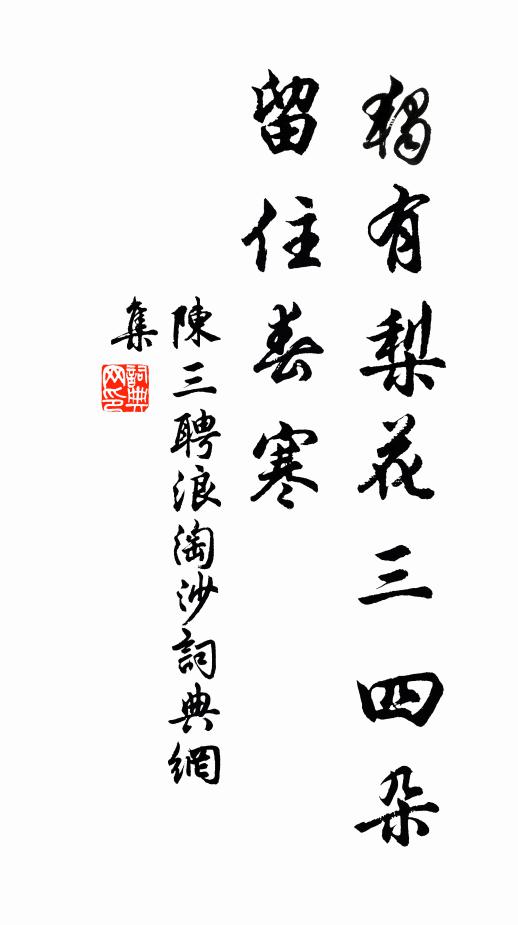 獨有梨花三四朵
留住春寒
陳三聘浪淘沙詞典網
集
詞典
网印